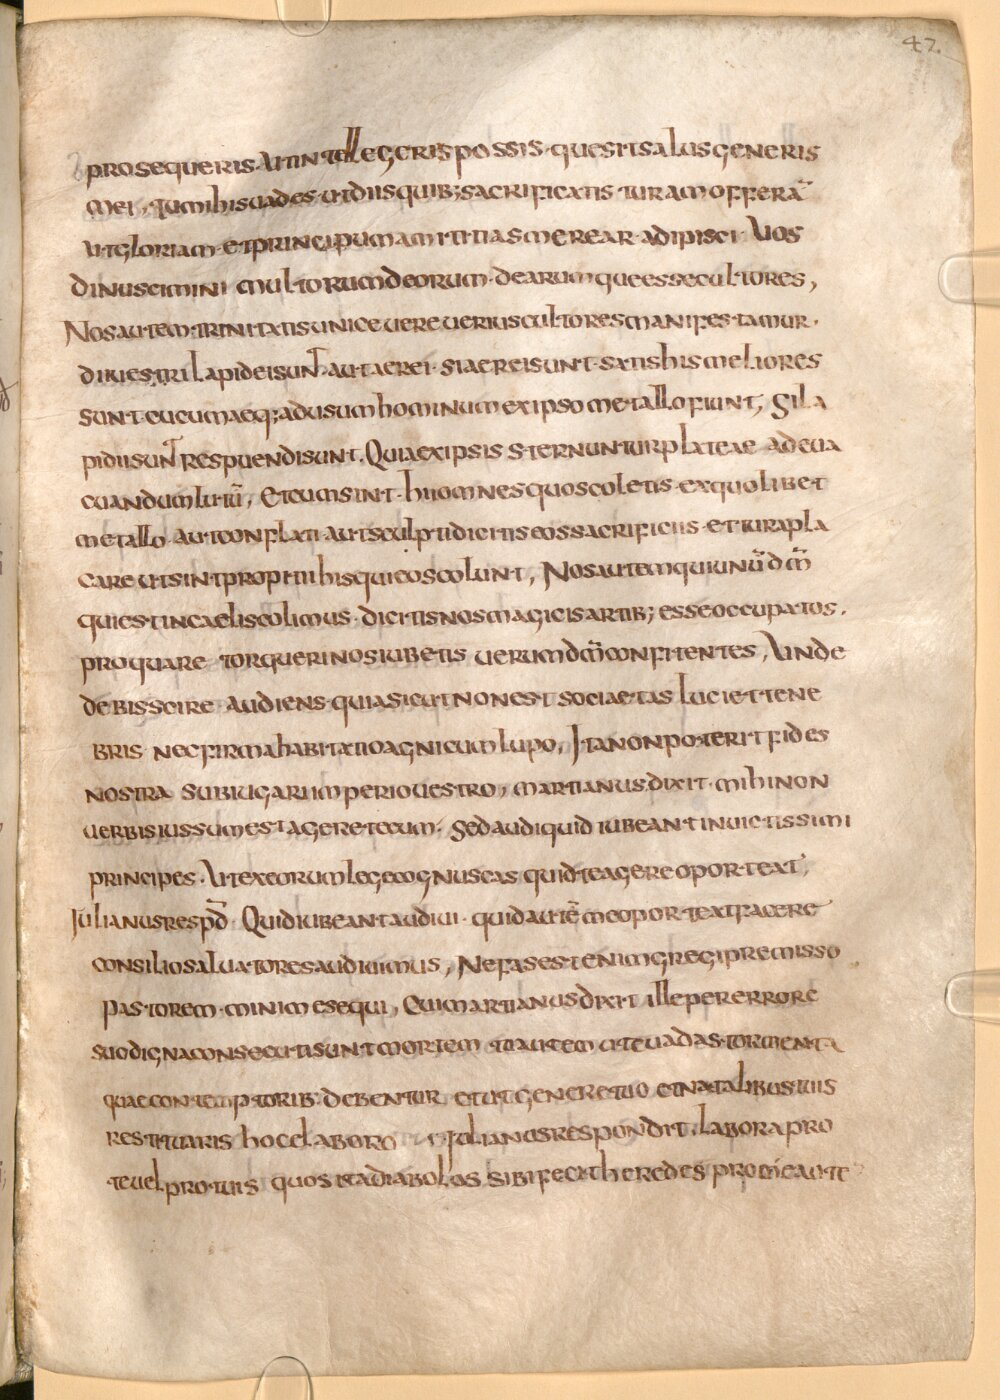 47.
prosequeris. Ut intellegeris possis. que sit salus generis
mei, Tu mihi suades. ut diis quib; sacrificatis. turam offerā
ut gloriam. et principum amititias merear. adipisci. Uos
dinuscimini multorum deorum. dearumque esse cultores,
Nos autem. trinitatis unice uere uerius cultores manifestamur.
di uestri lapidei sun̄t aut aerei. si aerei sunt. satis his meliores
sunt. eucumaeq; ad usum hominum ex ipso metallo fiunt; Si la
pidii sun̄t respuendi sunt. Quia ex ipsis sternuntur plateae ad eua
cuandum lutū, Et cum sint. hii omnes quos coletis. ex quo libet
metallo. aut conflati. aut sculpti dicitis eos sacrificiis. et tura pla
care ut sint propitii his qui eos colunt, Nos autem qui unū dm̄
qui est in caelis colimus. dicitis nos magicis artib; esse occupatos.
pro quare torqueri nos iubetis uerum dm̄ confitentes, Unde
debis scire audiens. quia sicut non est sociaetas luci et tene
bris nec firma habitatio agni cum lupo, Ita non poterit fides
nostra subiugari imperio uestro, martianus dixit. mihi non
uerbis iussum est agere tecum. Sed audi quid iubeant inuictissimi
principes. Ut ex eorum lege cognuscas quid te agere oporteat,
Iulianus respd̄. Quid iubeant audiui. quid autē me oporteat facere
consilio saluatores audiuimus, Nefas est enim gregi premisso
pastorem. minime sequi, Cui martianus dixit. ille per errore
suo digna consecuti sunt mortem tu autem ut euadas. tormenta
quae contemptorib. debentur et ut genere tuo et natalibus tuis
restituaris hoc elaboro. Iulianus respondit. labora pro
te uel pro tuis quos ita diabolos sibi fecit heredes pro me aute